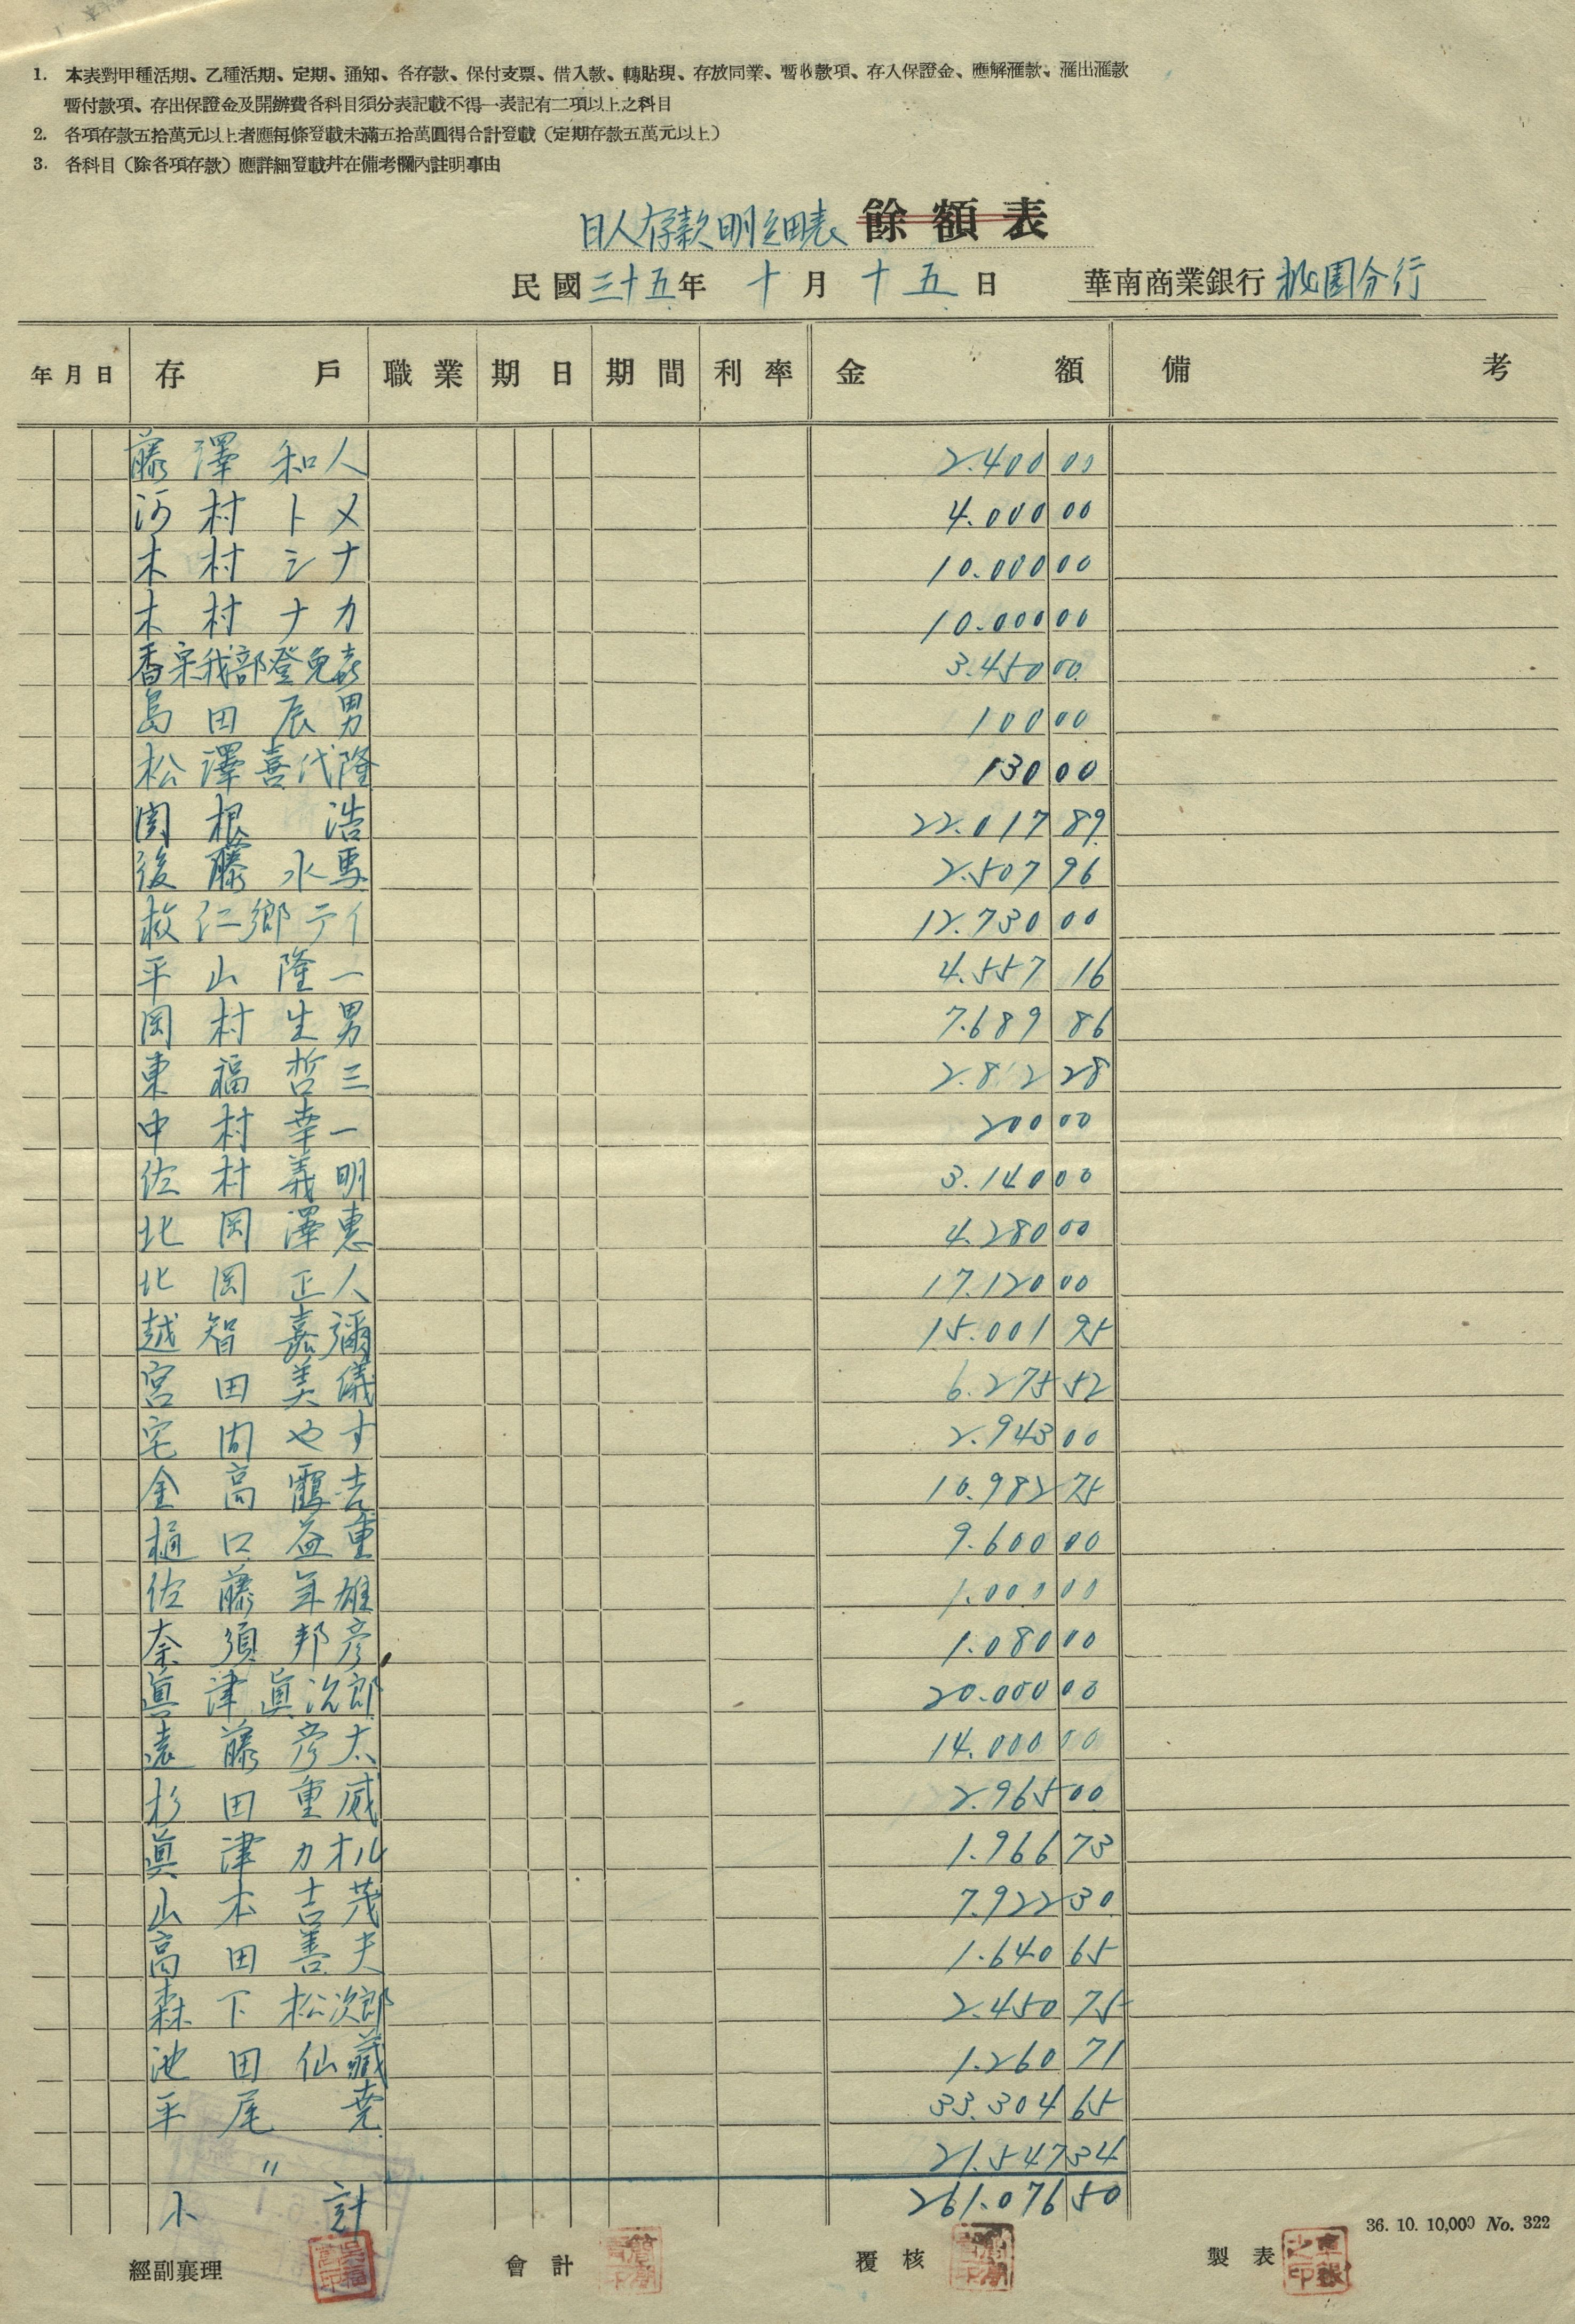 1. 本表對甲種活期、乙種活期、定期、通知、各存款、保付支票、借入款、轉貼現、存放同業、暫收款項、存入保證金、應解滙款、滙出滙款
暫付款項、存出保證金及開辦費各科目須分表記載不得一表記有二項以上之科目
2. 各項存款五拾萬元以上者應每條登載未滿五拾萬圓得合計登載（定期存款五萬元以上）
3. 各科目（除各項存款）應詳細登載幷在備考欄內註明事由
日人存款明細表 餘額表
民國三十五年 十月十五日 華南商業銀行 桃園分行
年月日 存戶 職業 期日 期間 利率 金額 備考
藤澤和人 2.400 00
河村トメ 4.000 00
木村シナ 10.000 00
木村ナカ 10.000 00
香宗我部登免喜 3.450 00
島田辰男 100 00
松澤喜代隆 130 00
関根浩 22.017 89
後藤水馬 2.507 96
救仁鄉テイ 12.730 00
平山隆一 4.557 16
岡村生男 7.689 86
東福哲三 2.812 28
中村幸一 200 00
佐村義明 3.140 00
北岡澤惠 4.280 00
北岡正人 17.120 00
越智嘉彌 15.001 95
宮田美儀 6.275 52
宅間やす 2.943 00
金高鶴吉 10.982 75
樋口益重 9.600 00
佐藤年雄 1.000 00
奈須邦彦 1.080 00
眞津眞次郎 20.000 00
遠藤彦太 14.000 00
杉田重威 2.965 00
眞津カオル 1.966 73
山本吉茂 7.922 30
高田善夫 1.640 65
森下松次郎 2.450 75
池田仙藏 1.260 71
平尾堯 33.304 65
〃 21.547 34
小計 261.076 50
36. 10. 10,000 No. 322
經副襄理 會計 覆核 製表